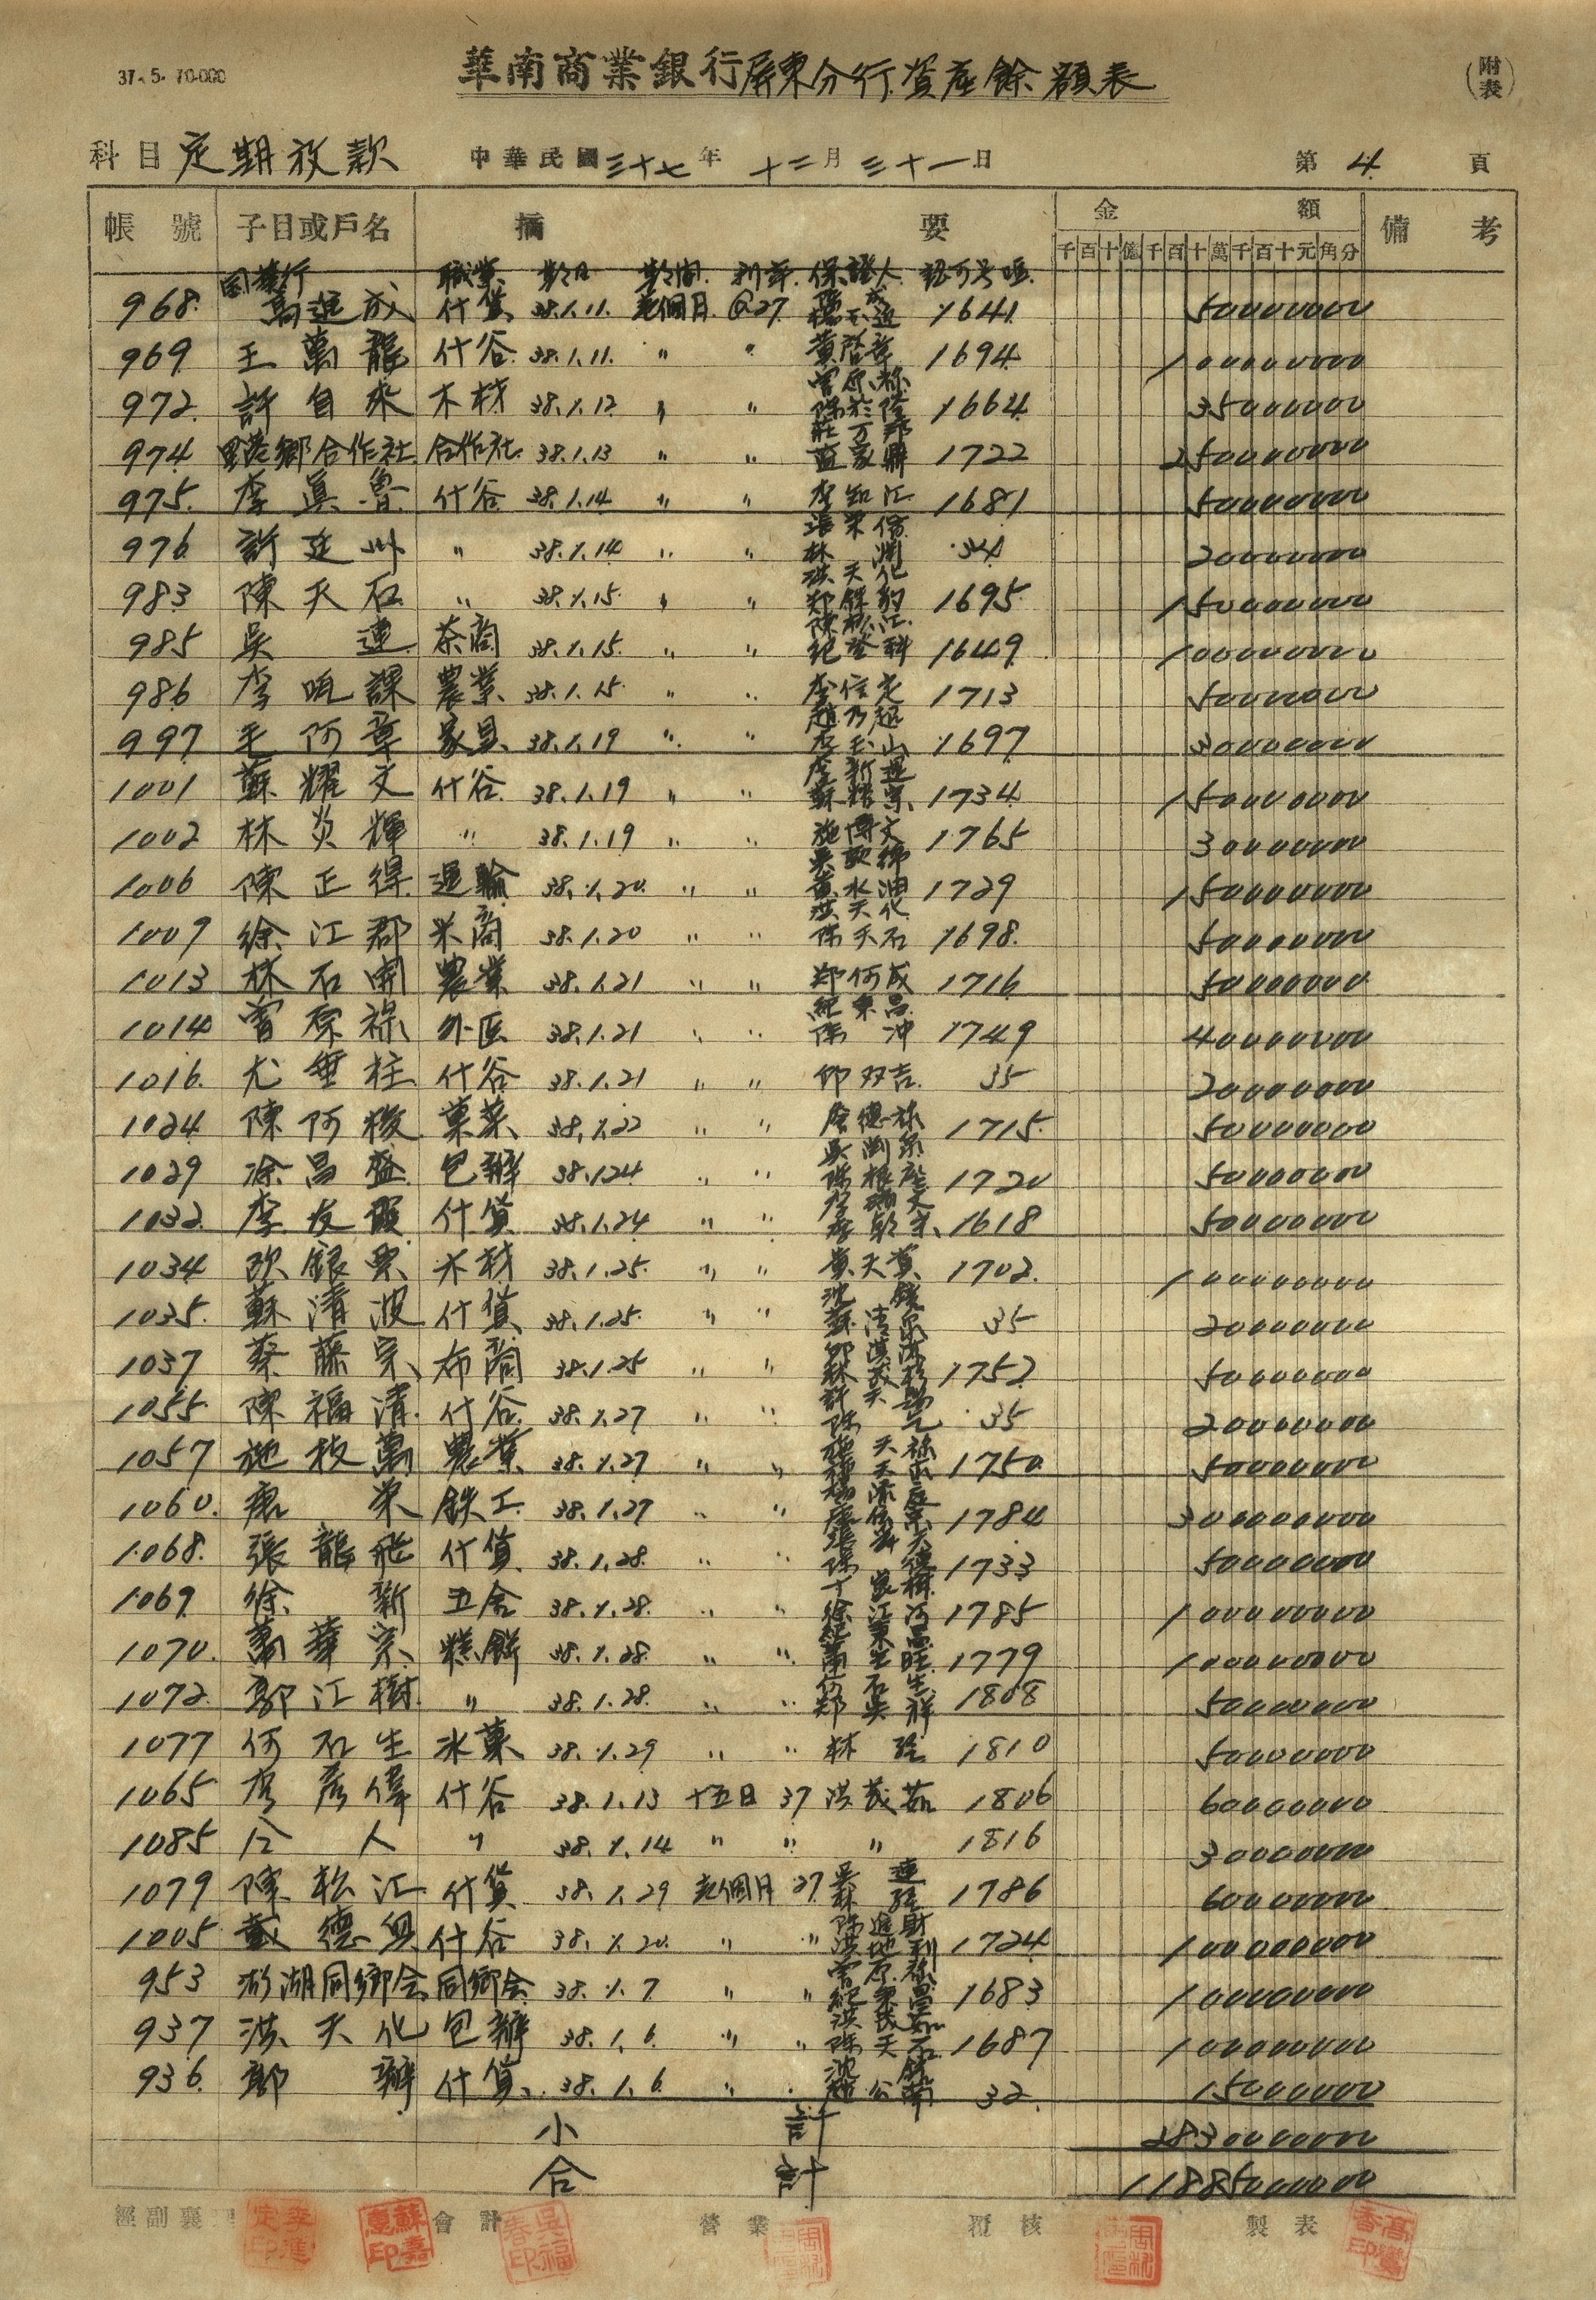 37.5.70.000
華南商業銀行屏東分行資產餘額表
(附表)
科目 定期放款 中華民國三十七年十二月三十一日 第4頁
帳號 子目或戶名 摘要 金額 備考
千百十億千百十萬千百十元角分
職業 期日 期間 利率 保證人 認可号碼
968. 高進成 什貨 38.1.11. 壱個月 @27 1641 50000000
969 王萬龍 什谷 38.1.11. " " 黃啓章 1694 100000000
972. 許自來 木材 38.1.12 " " 1664 35000000
974 里港鄉合作社 合作社 38.1.13 " " 藍家鼎 1722 250000000
975. 李真魯 什谷 38.1.14 " " 李知江 1681 50000000
976 許延州 " 38.1.14 " " 林渊 34 20000000
983 陳天石 " 38.1.15. " " 洪天化 1695 150000000
985 吳連 茶商 38.1.15. " " 陳松江 紀登科 1649 100000000
986 李吼課 農業 38.1.15. " " 李信定 1713 50000000
997 毛阿章 家具 38.1.19 " " 1697 30000000
1001 蘇耀文 什谷 38.1.19 " " 蘇耀宗 1734 150000000
1002 林炎輝 " 38.1.19 " " 施博文 1765 30000000
1006 陳正得 運輸 38.1.20. " " 黃水油 1729 150000000
1009 徐江郡 米商 38.1.20 " " 洪天化 陳天石 1698. 50000000
1013 林石開 農業 38.1.21 " " 郑何成 1716 50000000
1014 曾原祿 外匠 38.1.21 " " 紀東昌 陳冲 1749 40000000
1016. 尤垂柱 什谷 38.1.21 " " 邱双吉 35 20000000
1024 陳阿梭 菓菜 38.1.22 " " 1715. 50000000
1029 涂昌盛 包辦 38.1.24 " " 1720 50000000
1032. 李友霞 什貨 38.1.24 " " 1618 50000000
1034 欧銀票 木材 38.1.25. " " 黃天賞 1702. 100000000
1035. 蘇清波 什貨 38.1.25. " " 蘇清泉 35 20000000
1037 蔡藤宗 布商 38.1.25 " " 1752 50000000
1055. 陳福清 什谷 38.1.27 " " 35 20000000
1057 施枝萬 農業 38.1.27 " " 1750. 50000000
1060. 唐榮 鉄工 38.1.27 " " 1784 300000000
1068. 張龍飛 什貨 38.1.28. " " 1733 50000000
1069 徐新 五金 38.1.28. " " 徐江河 1785 100000000
1070. 蕭華宗 糕餅 38.1.28. " " 紀東昌 1779 100000000
1072. 郭江樹 " 38.1.28. " " 何石生 郑吳祥 1808 50000000
1077 何石生 氷菓 38.1.29 " " 林 1810 50000000
1065 彥偉 什谷 38.1.13 十五日 37 洪茂茹 1806 60000000
1085 仝人 " 38.1.14 " " " 1816 30000000
1079 陳松江 什貨 38.1.29 壱個月 27 吳連 1786 60000000
1005 戴德興 什谷 38.1.20. " " 陳進財 洪地利 1724 100000000
953 澎湖同鄉会 同鄉会 38.1.7 " " 曾原祿 紀東昌 1683 100000000
937 洪天化 包辦 38.1.6. " " 洪茂茹 陳天石 1687 100000000
936. 郭辦 什貨 38.1.6. " " 32. 15000000
小計 2830000000
合計 11885000000
經副襄理 會計 營業 覆核 製表